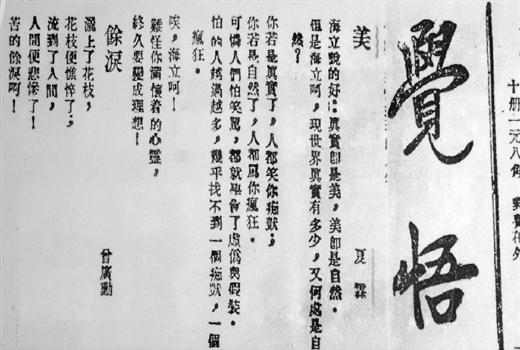 十册一元八角
覺悟
美
夏霖
海立說的好:眞實卽是美,美卽是自然。
但是海立呵,現世界眞實有多少,又何處是自
然?
你若是眞實了,人都笑你痴獃;
你若是自然了,人都罵你瘋狂。
可憐人們怕笑罵,都就學會了虛僞與假裝。
怕的人越過越多,幾乎找不到一個痴獃,一個
瘋狂。
唉,海立呵!
難怪你滿懷着的心靈,
終久要變成理想!
餘淚
曾廣勳
灑上了花枝,
花枝便憔悴了;
流到了人間,
人間便悲慘了!
苦的餘淚呵!